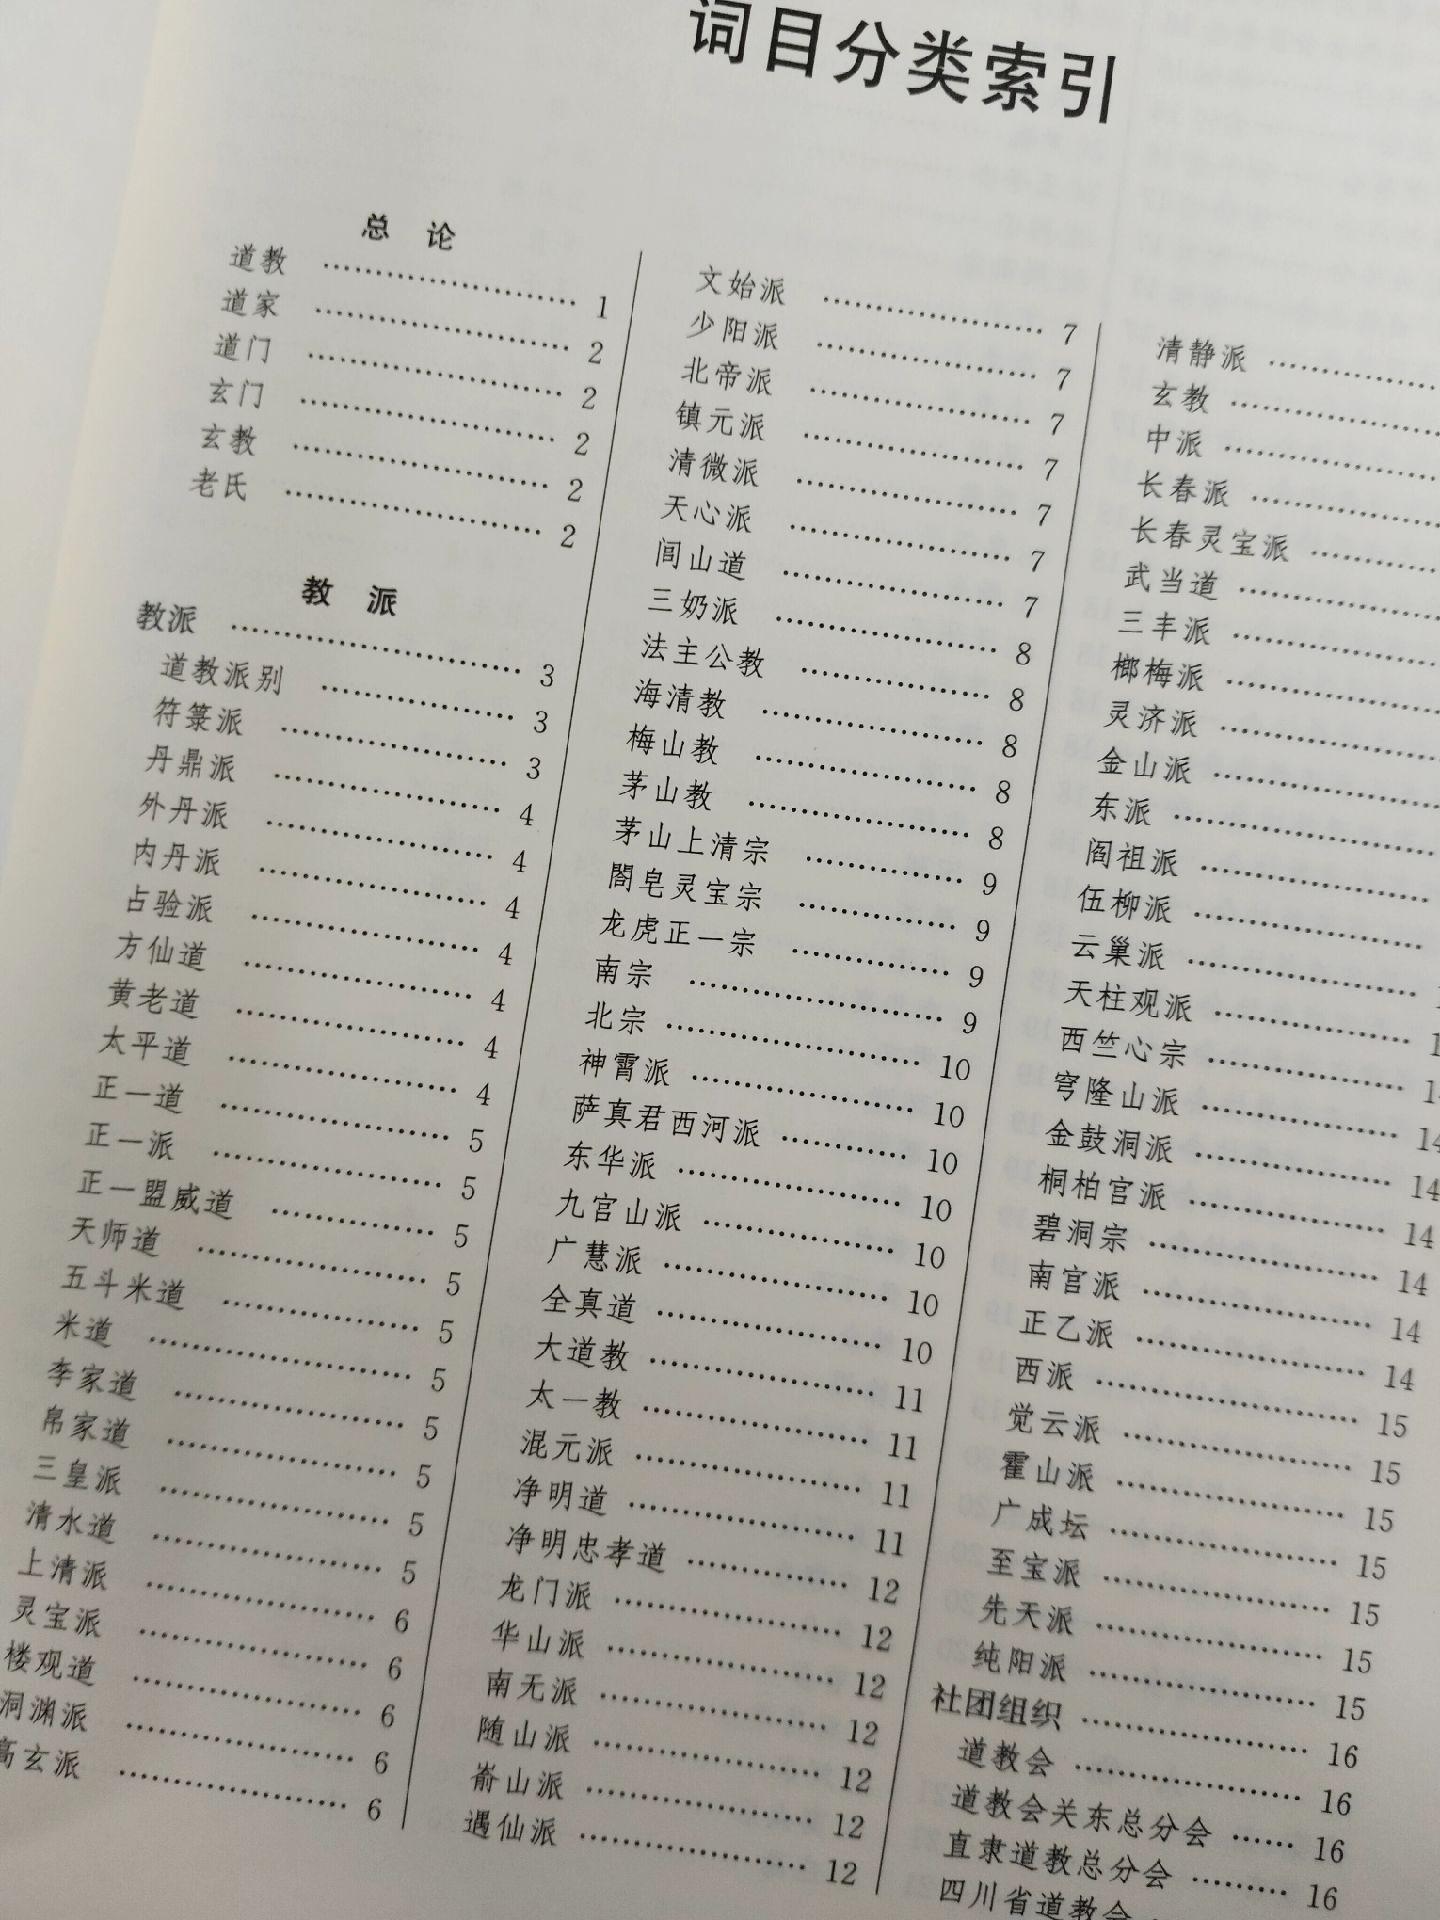 词目分类索引
总 论
道教 …… 1
道家 …… 2
道门 …… 2
玄门 …… 2
玄教 …… 2
老氏 …… 2
教 派
教派 …… 3
道教派别 …… 3
符箓派 …… 3
丹鼎派 …… 4
外丹派 …… 4
内丹派 …… 4
占验派 …… 4
方仙道 …… 4
黄老道 …… 4
太平道 …… 4
正一道 …… 5
正一派 …… 5
正一盟威道 …… 5
天师道 …… 5
五斗米道 …… 5
米道 …… 5
李家道 …… 5
帛家道 …… 5
三皇派 …… 5
清水道 …… 5
上清派 …… 6
灵宝派 …… 6
楼观道 …… 6
洞渊派 …… 6
高玄派 …… 6
文始派 …… 7
少阳派 …… 7
北帝派 …… 7
镇元派 …… 7
清微派 …… 7
天心派 …… 7
闾山道 …… 7
三奶派 …… 8
法主公教 …… 8
海清教 …… 8
梅山教 …… 8
茅山教 …… 8
茅山上清宗 …… 9
閤皂灵宝宗 …… 9
龙虎正一宗 …… 9
南宗 …… 9
北宗 …… 10
神霄派 …… 10
萨真君西河派 …… 10
东华派 …… 10
九宫山派 …… 10
广慧派 …… 10
全真道 …… 10
大道教 …… 11
太一教 …… 11
混元派 …… 11
净明道 …… 11
净明忠孝道 …… 12
龙门派 …… 12
华山派 …… 12
南无派 …… 12
随山派 …… 12
嵛山派 …… 12
遇仙派 …… 12
清静派 ……
玄教 ……
中派 ……
长春派 ……
长春灵宝派 ……
武当道 ……
三丰派 ……
榔梅派 ……
灵济派 ……
金山派 ……
东派 ……
阎祖派 ……
伍柳派 ……
云巢派 ……
天柱观派 ……
西竺心宗 ……
穹隆山派 …… 14
金鼓洞派 …… 14
桐柏宫派 …… 14
碧洞宗 …… 14
南宫派 …… 14
正乙派 …… 14
西派 …… 15
觉云派 …… 15
霍山派 …… 15
广成坛 …… 15
至宝派 …… 15
先天派 …… 15
纯阳派 …… 15
社团组织 …… 16
道教会 …… 16
道教会关东总分会 …… 16
直隶道教总分会 …… 16
四川省道教会